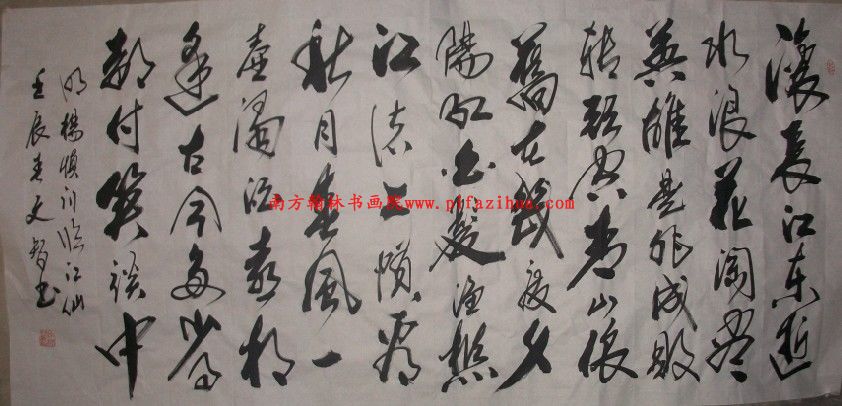 滚長江东逝
水浪花淘尽
英雄是非成敗
转頭空青山依
舊在幾度夕
陽紅白髮渔樵
江渚上慣看
秋月春風一
壶濁酒喜相
逢古今多少事
都付笑谈中
明楊慎词临江仙
壬辰春文智书
南方翰林书画院www.plfazihua.com